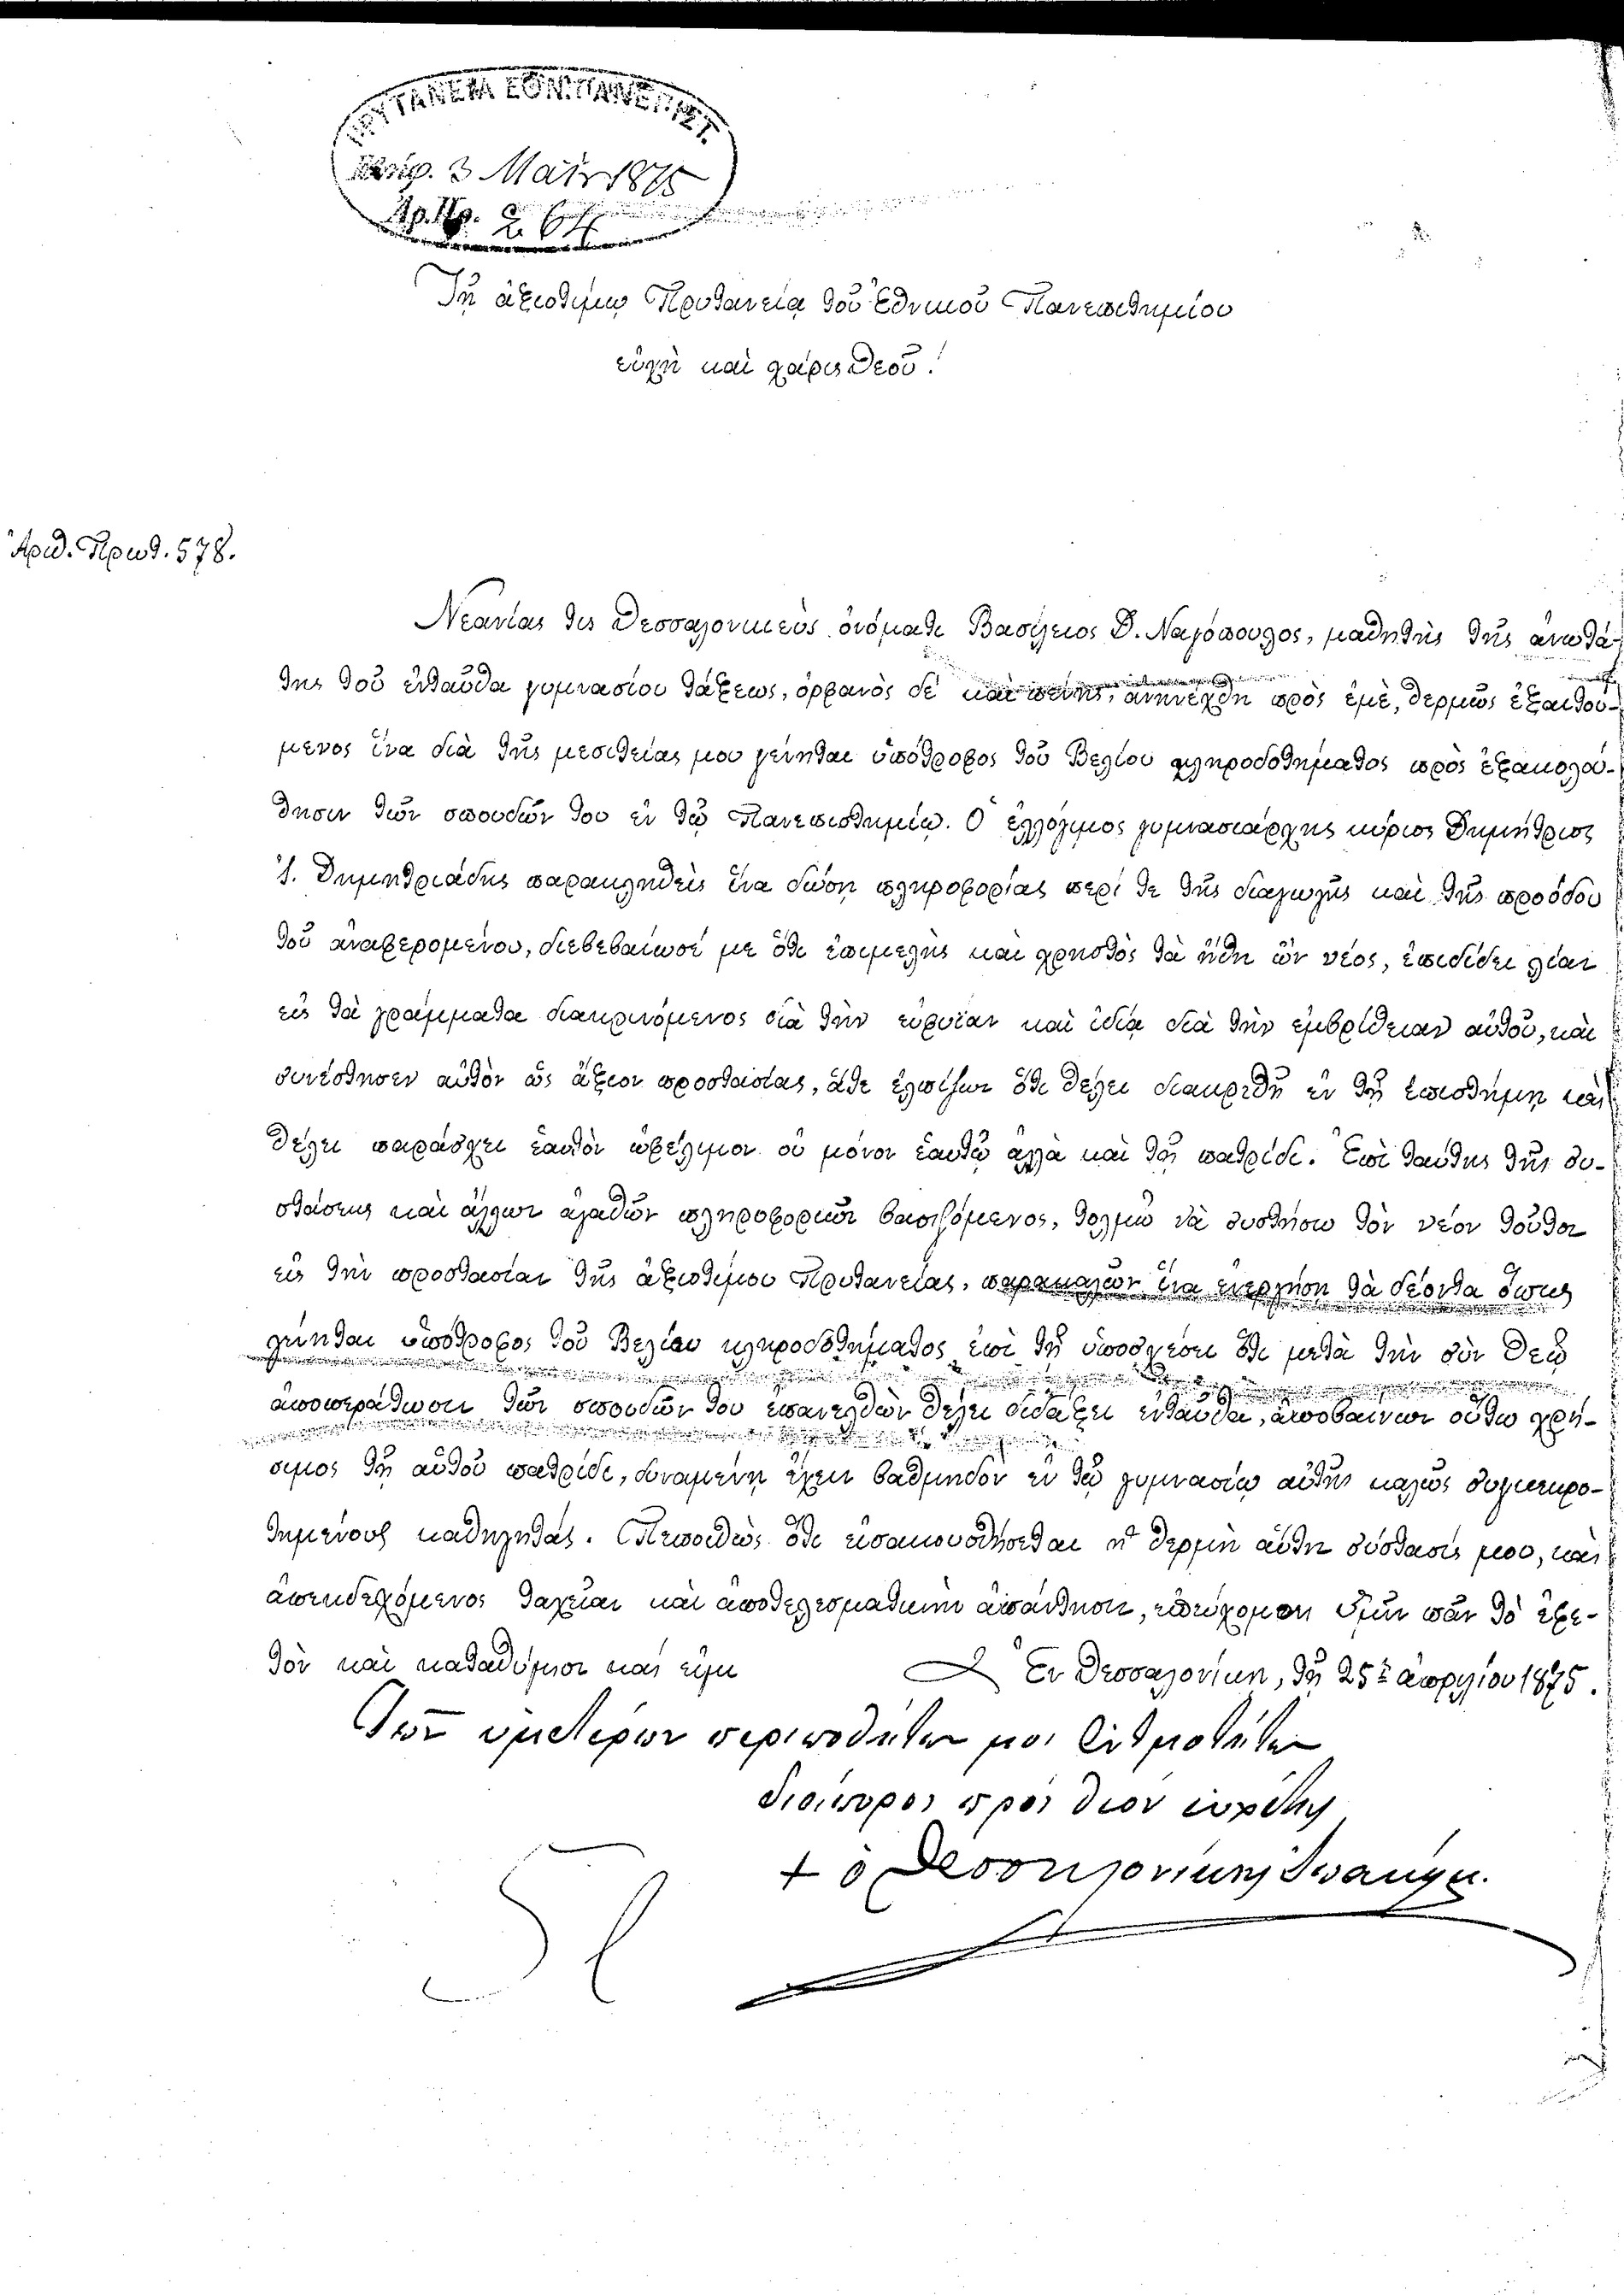 ΠΡΥΤΑΝΕΙΑ ΕΘΝ. ΠΑΝΕΠΙΣΤ.
3 Μαΐου 1875
Αρ. Πρ. 264
Τῇ ἀξιοτίμῳ Πρυτανείᾳ τοῦ Ἐθνικοῦ Πανεπιστημίου
εὐχὴ καὶ χάρις Θεοῦ!
Ἀριθ. Πρωτ. 578.
Νεανίας τις Θεσσαλονικεὺς ὀνόματι Βασίλειος Δ. Ναγόπουλος, μαθητὴς τῆς ἀνωτά-
της τοῦ ἐνταῦθα γυμνασίου τάξεως, ὀρφανὸς δὲ καὶ πένης, ἀνηνέχθη πρὸς ἐμὲ, θερμῶς ἐξαιτού-
μενος ἵνα διὰ τῆς μεσιτείας μου γείνηται ὑπότροφος τοῦ Βελίου κληροδοτήματος πρὸς ἐξακολού-
θησιν τῶν σπουδῶν του ἐν τῷ Πανεπιστημίῳ. Ὁ ἐλλόγιμος γυμνασιάρχης κύριος Δημήτριος
Ἰ. Δημητριάδης παρακληθεὶς ἵνα δώσῃ πληροφορίας περί τε τῆς διαγωγῆς καὶ τῆς προόδου
τοῦ ἀναφερομένου, διεβεβαίωσέ με ὅτι ἐπιμελὴς καὶ χρηστὸς τὰ ἤθη ὢν νέος, ἐπιδίδει λίαν
εἰς τὰ γράμματα διακρινόμενος διὰ τὴν εὐφυΐαν καὶ ἰδίᾳ διὰ τὴν ἐμβρίθειαν αὐτοῦ, καὶ
συνέστησεν αὐτὸν ὡς ἄξιον προστασίας, ἅτε ἐλπίζων ὅτι θέλει διακριθῆ ἐν τῇ ἐπιστήμῃ καὶ
θέλει παράσχει ἑαυτὸν ὠφέλιμον οὐ μόνον ἑαυτῷ ἀλλὰ καὶ τῇ πατρίδι. Ἐπὶ ταύτης τῆς συ-
στάσεως καὶ ἄλλων ἀγαθῶν πληροφοριῶν βασιζόμενος, τολμῶ νὰ συστήσω τὸν νέον τοῦτον
εἰς τὴν προστασίαν τῆς ἀξιοτίμου Πρυτανείας, παρακαλῶν ἵνα ἐνεργήσῃ τὰ δέοντα ὅπως
γείνηται ὑπότροφος τοῦ Βελίου κληροδοτήματος ἐπὶ τῇ ὑποσχέσει ὅτι μετὰ τὴν σὺν Θεῷ
ἀποπεράτωσιν τῶν σπουδῶν του ἐπανελθὼν θέλει διδάξει ἐνταῦθα, ἀποβαίνων οὕτω χρή-
σιμος τῇ αὐτοῦ πατρίδι, δυναμένῃ ἔχειν βαθμηδὸν ἐν τῷ γυμνασίῳ αὐτῆς καλῶς συγκεκρο-
τημένους καθηγητάς. Πεποιθὼς ὅτι εἰσακουσθήσεται ἡ θερμὴ αὕτη σύστασίς μου, καὶ
ἀπεκδεχόμενος ταχεῖαν καὶ ἀποτελεσματικὴν ἀπάντησιν, ἐπεύχομαι ὑμῖν πᾶν τὸ ἐφε-
τὸν καὶ καταθύμιον καὶ εἰμι
Ἐν Θεσσαλονίκῃ, τῇ 25ῃ ἀπριλίου 1875.
Τῶν ὑμετέρων περιποθήτων μοι Λογιοτήτων
διάπυρος πρὸς Θεὸν εὐχέτης
+ ὁ Θεσσαλονίκης Ἰωακείμ.